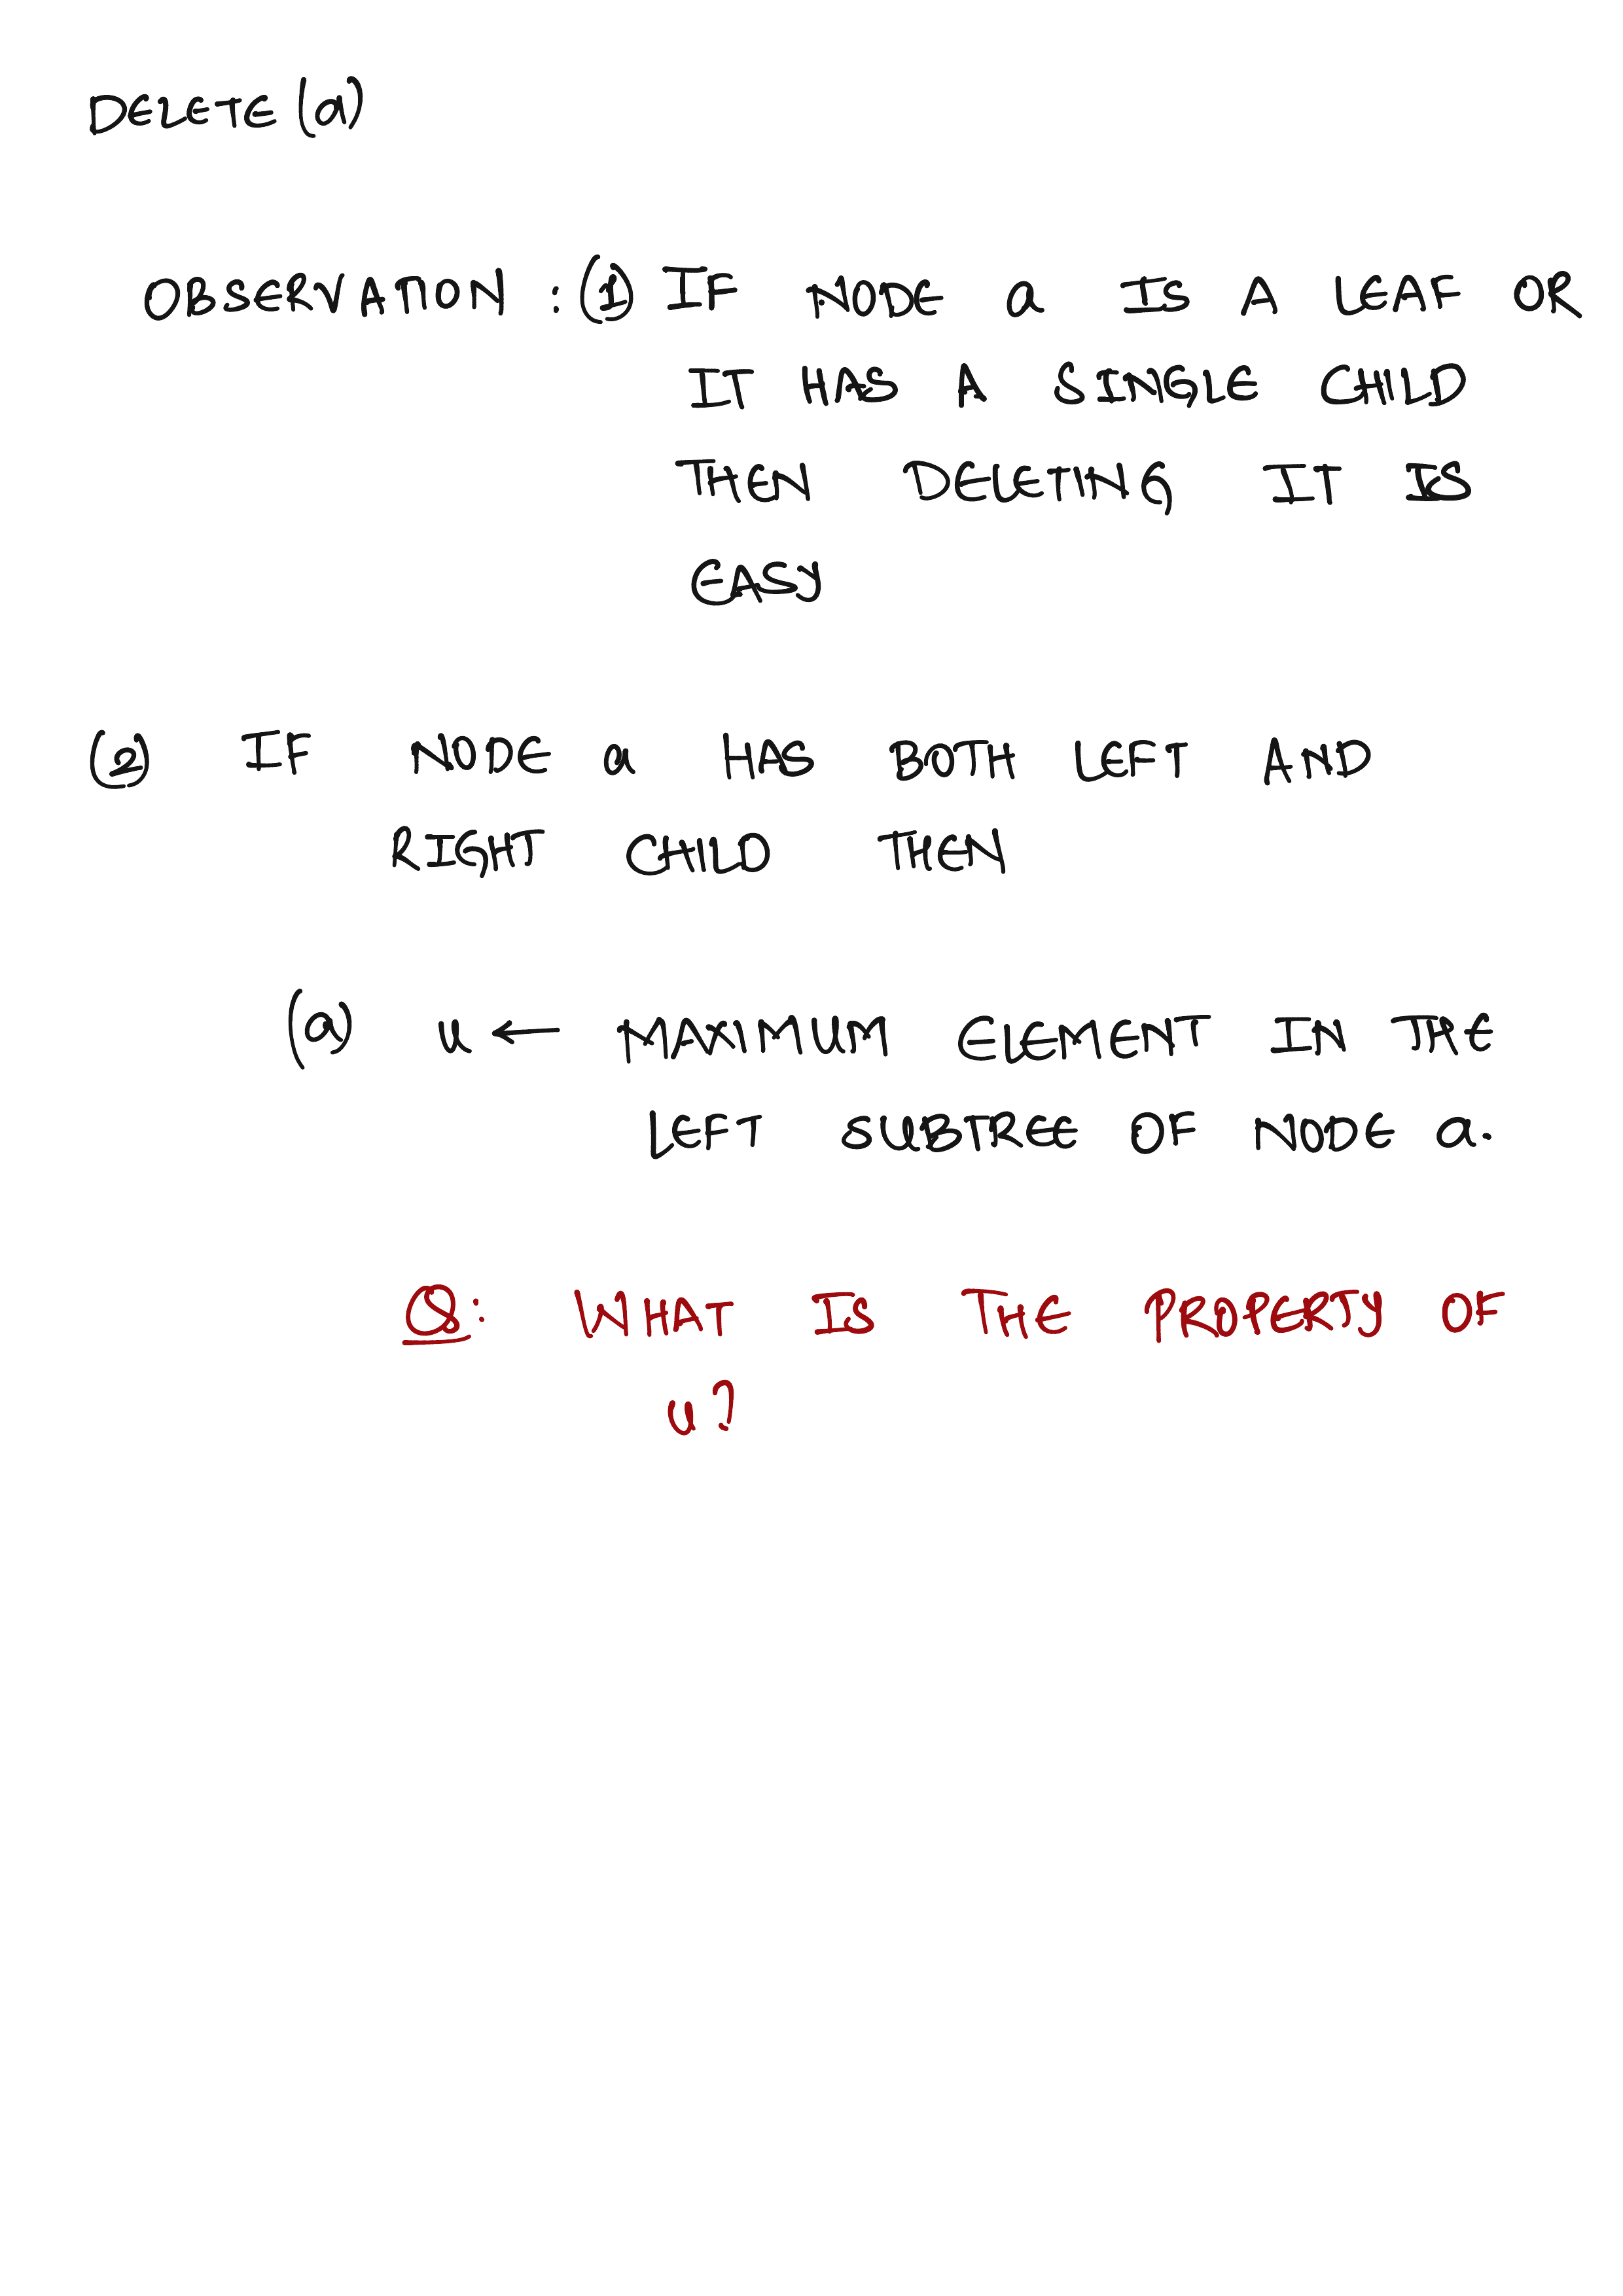 DELETE (a)
OBSERVATION : (1) IF NODE a IS A LEAF OR
IT HAS A SINGLE CHILD
THEN DELETING IT IS
EASY
(2) IF NODE a HAS BOTH LEFT AND
RIGHT CHILD THEN
(a) u ← MAXIMUM ELEMENT IN THE
LEFT SUBTREE OF NODE a.
Q: WHAT IS THE PROPERTY OF
u?